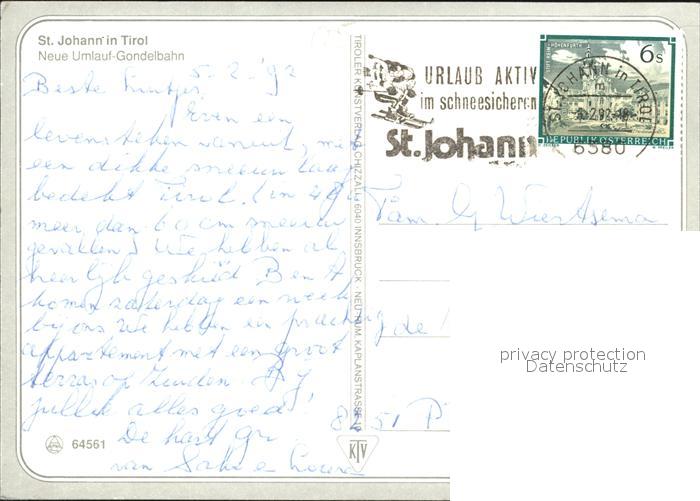 St. Johann in Tirol
Neue Umlauf-Gondelbahn
5-2-'92
Beste
Even een
levensteken vanuit, met
een dikke sneeuw laag
bedekt Tirol. (in 48
meer dan 60 cm sneeuw
gevallen) We hebben al
heerlijk geskied Ben
komen zaterdag een week
bij ons We hebben een prachtig
appartement met een groot
terras op Zuiden
jullie alles goed!
De hart. gr.
van
64561
TIROLER KUNSTVERLAG CHIZZALI, 6040 INNSBRUCK - NEU-RUM, KAPLANSTRASSE
KTV
URLAUB AKTIV
im schneesicheren
St.Johann
ST. JOHANN in TIROL
6380
STIFT REIN-HOHENFURTH
6s
REPUBLIK ÖSTERREICH
Fam. G Wiertsema
de
8251 P
privacy protection
Datenschutz